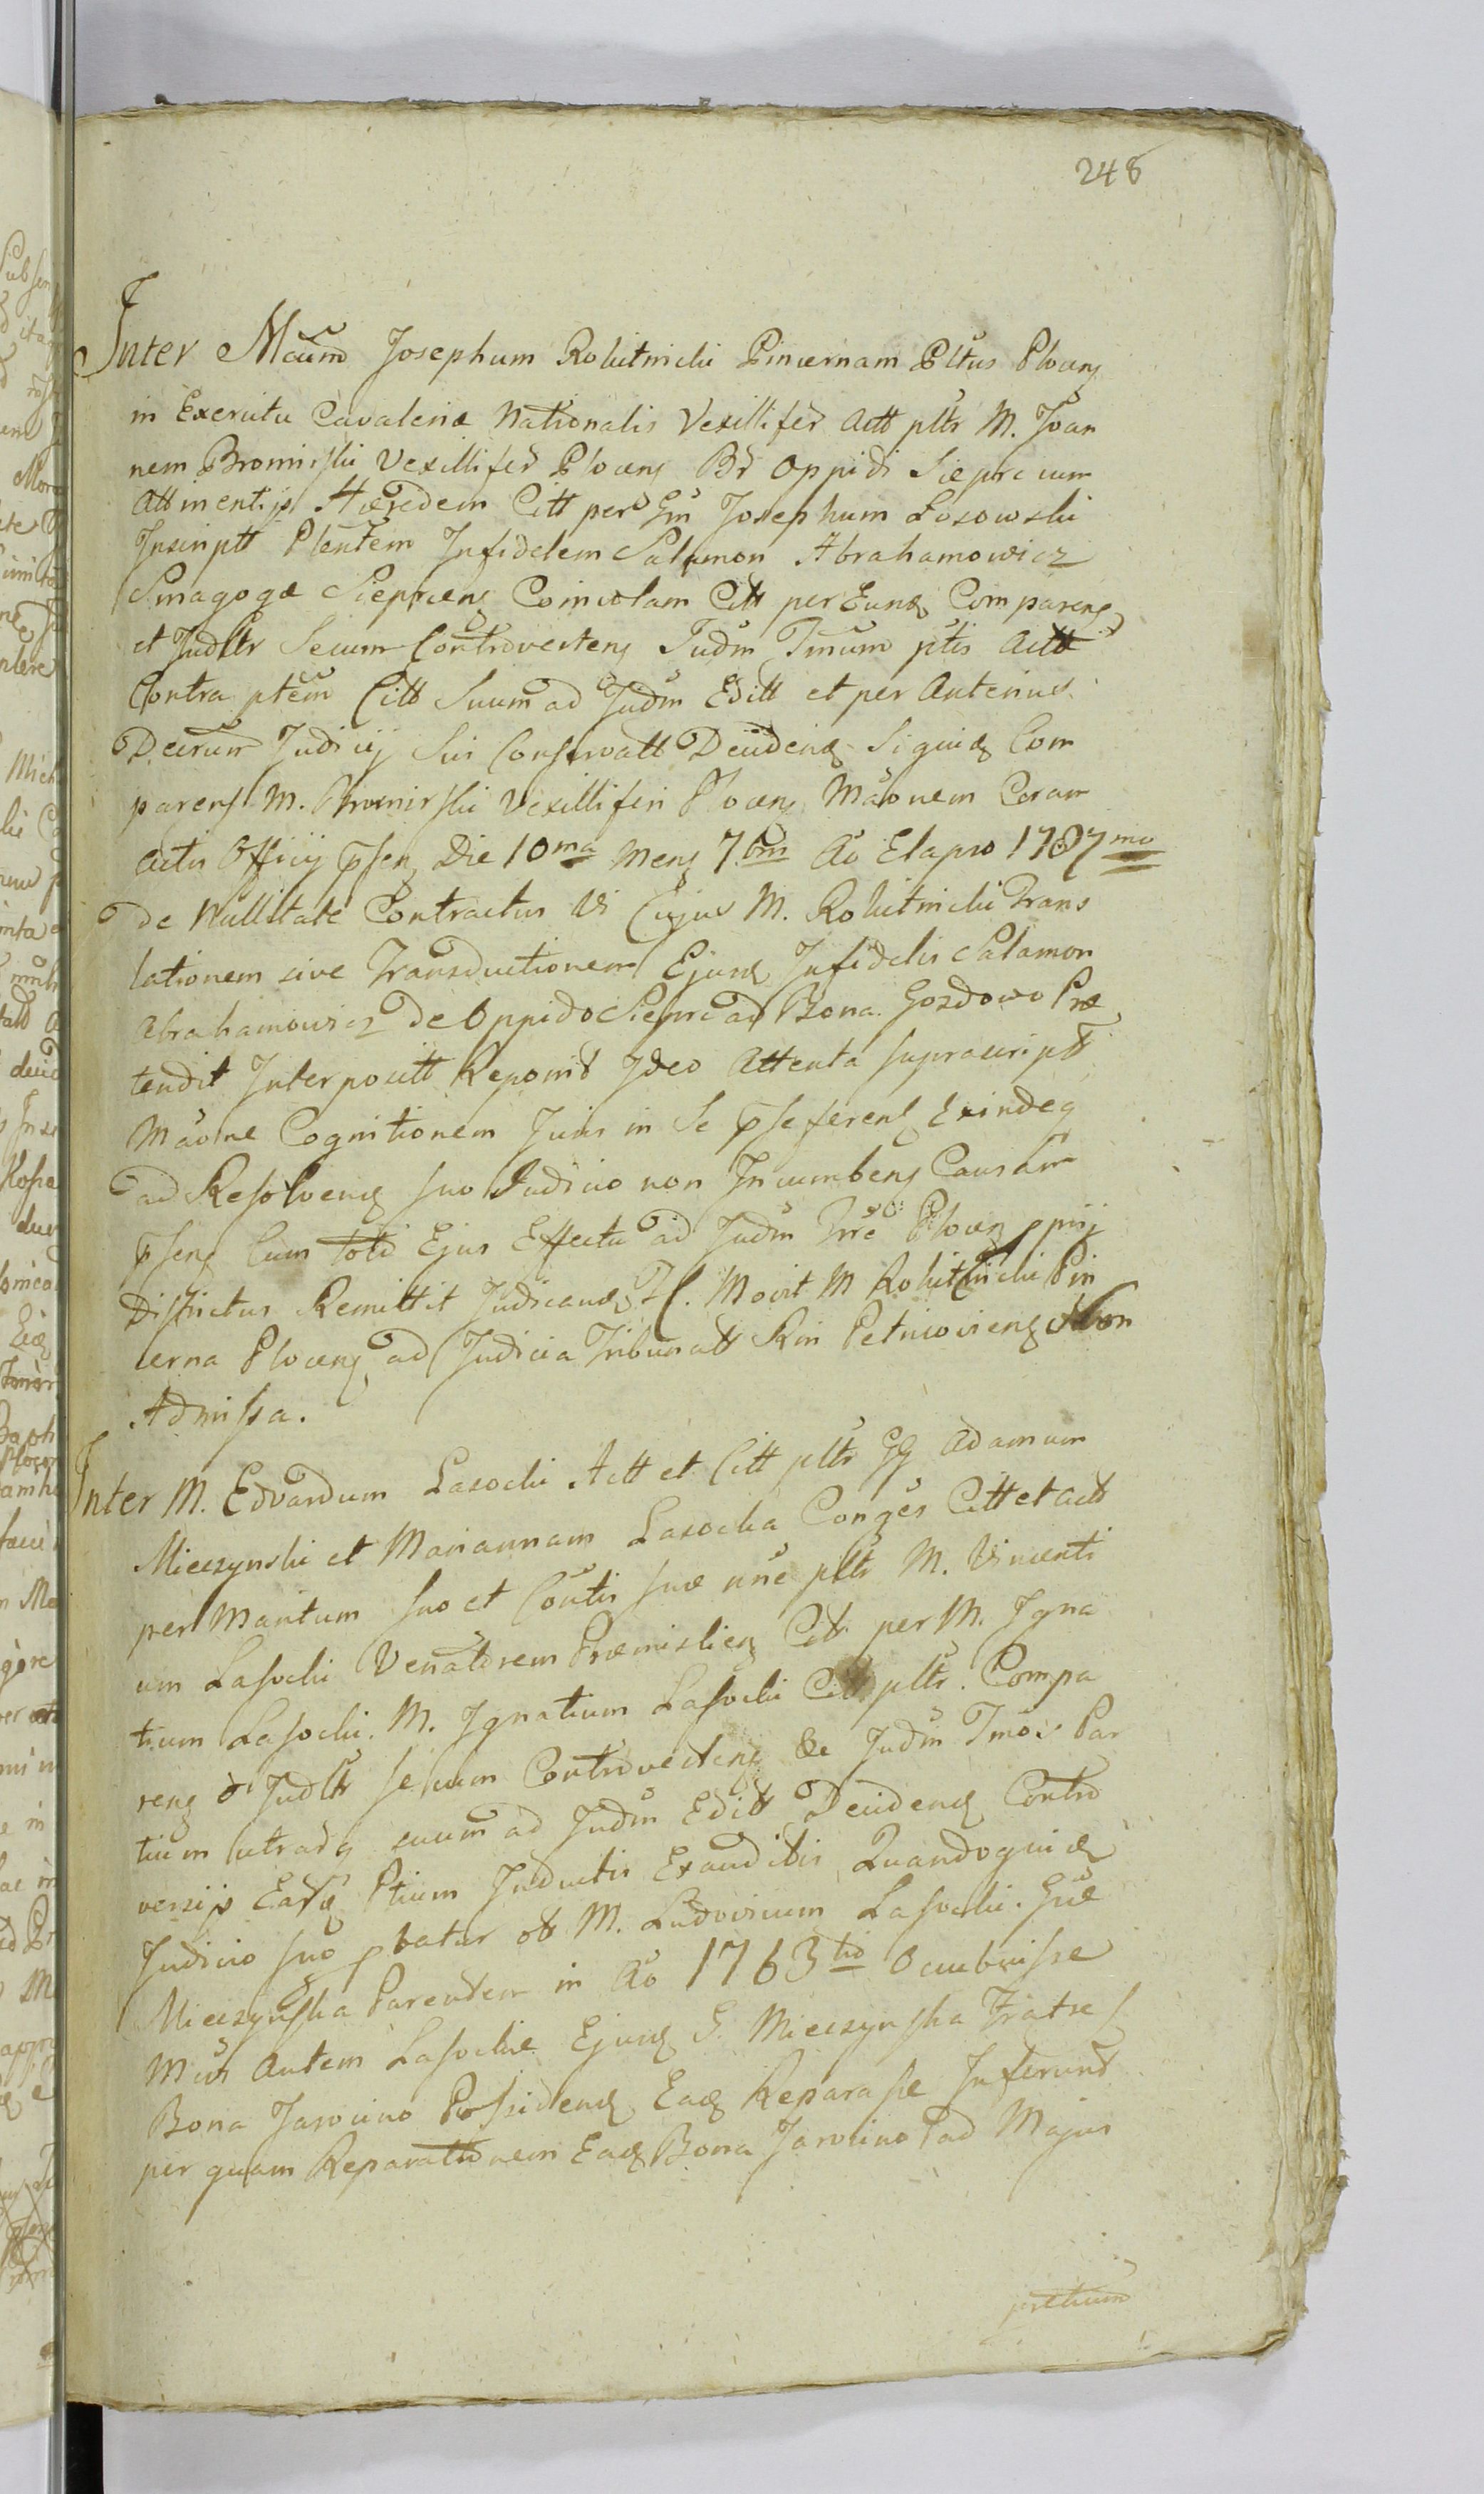 248
Inter Mcum Josephum Rokitnicki Pincernam Pltus Plocens
in Exercitu Cavaleriæ Nationalis Vexillifer Actt pltr M. Joan
nem Bromirski Vexillifer Plocens Br Oppidi Sieprc cum
Attinentijs Hæredem Citt per Gm Josephum Łosowski
Inscriptt Plentem Infidelem Salamon Abrahamowicz
Sinagogæ Sieprcens Comcolam Citt per Eund Comparens
et Judltr Secum Controvertens Judm Tmum ptis Actt
Contra ptem Citt Suum ad Judm Editt et per Anterius
Decrum Judicij Sui Conservatt Deciden Siquid Com
parens M. Bromirski Vexillifer Plocens Maonem Coram
actis Officij psen Die 10ma Mens 7bris Ao Elapso 1787mo
De Nullitate Contractus Vi Cujus M. Rokitnicki Trans
lationem sive Transductionem Ejusd Infidelis Salamon
Abrahamowicz De Oppido Sieprc ad Bona Gozdowo Præ
tendit Interpositt Reponit Ideo Attenta suprascriptt
Maone Cognitionem Juris in Se pseferens Exindeq
ad Resolvend suo Judicio non Incumbens Causam
psens Cum toto Ejus Effectu ad Judm Trre Plocen pprij
Districtus Remittit Judicand. M Rokitnicki Pin
cerna Plocens ad Judicia Tribunatt Petricoviens Non
Admissa.
Inter M. Edvardum Lasocki Actt et Citt pltr GG Adamum
Mieczynski et Mariannam Lasocka Conges Citt et actt
per Maritum suo et Contis suæ nne pltr M. Vincenti
um Lasocki Venatorem Præmisliens Citt per M. Igna
tium Lasocki. M. Ignatium Lasocki Citt pltr. Compa
rens & Judltr secum Controvertens Judm Tmos Par
tium utradq suum ad Judm Editt Decidend Contro
versijs Eard Ptium Inductis Exauditis Quandoquid
Judicio suo pbatur ob M. Ludovicum Lasocki. Gsæ
Mieczynska Parentem in Ao 1763tio Occubuisse
autem Lasockie Ejusd G. Mieczynska Fratres
Bona Jarocino Possidend Ead Reparasse Inferunt
per quam Reparationem Ead Bona Jarocino ad Majus
pretium